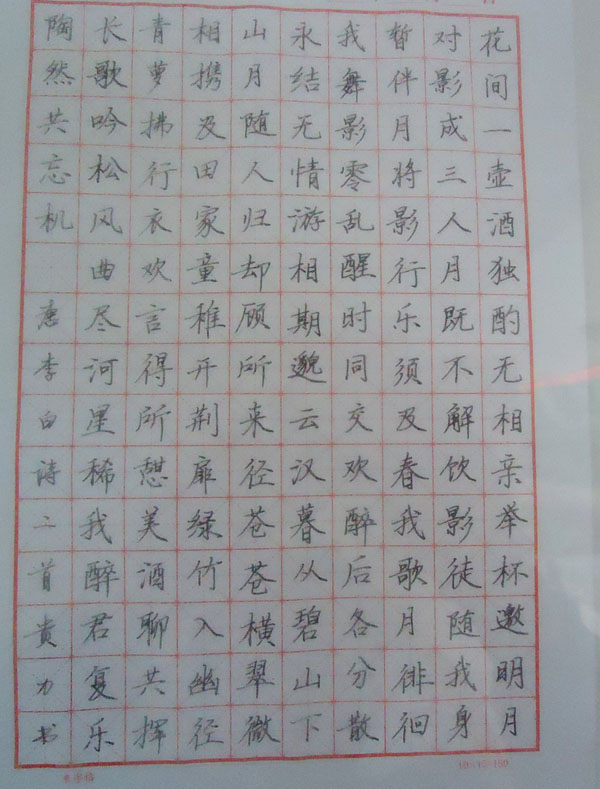 花间一壶酒独酌无相亲举杯邀明月
对影成三人月既不解饮影徒随我身
暂伴月将影行乐须及春我歌月徘徊
我舞影零乱醒时同交欢醉后各分散
永结无情游相期邈云汉暮从碧山下
山月随人归却顾所来径苍苍横翠微
相携及田家童稚开荆扉绿竹入幽径
青萝拂行衣欢言得所憩美酒聊共挥
长歌吟松风曲尽河星稀我醉君复乐
陶然共忘机 唐李白诗二首贵力书